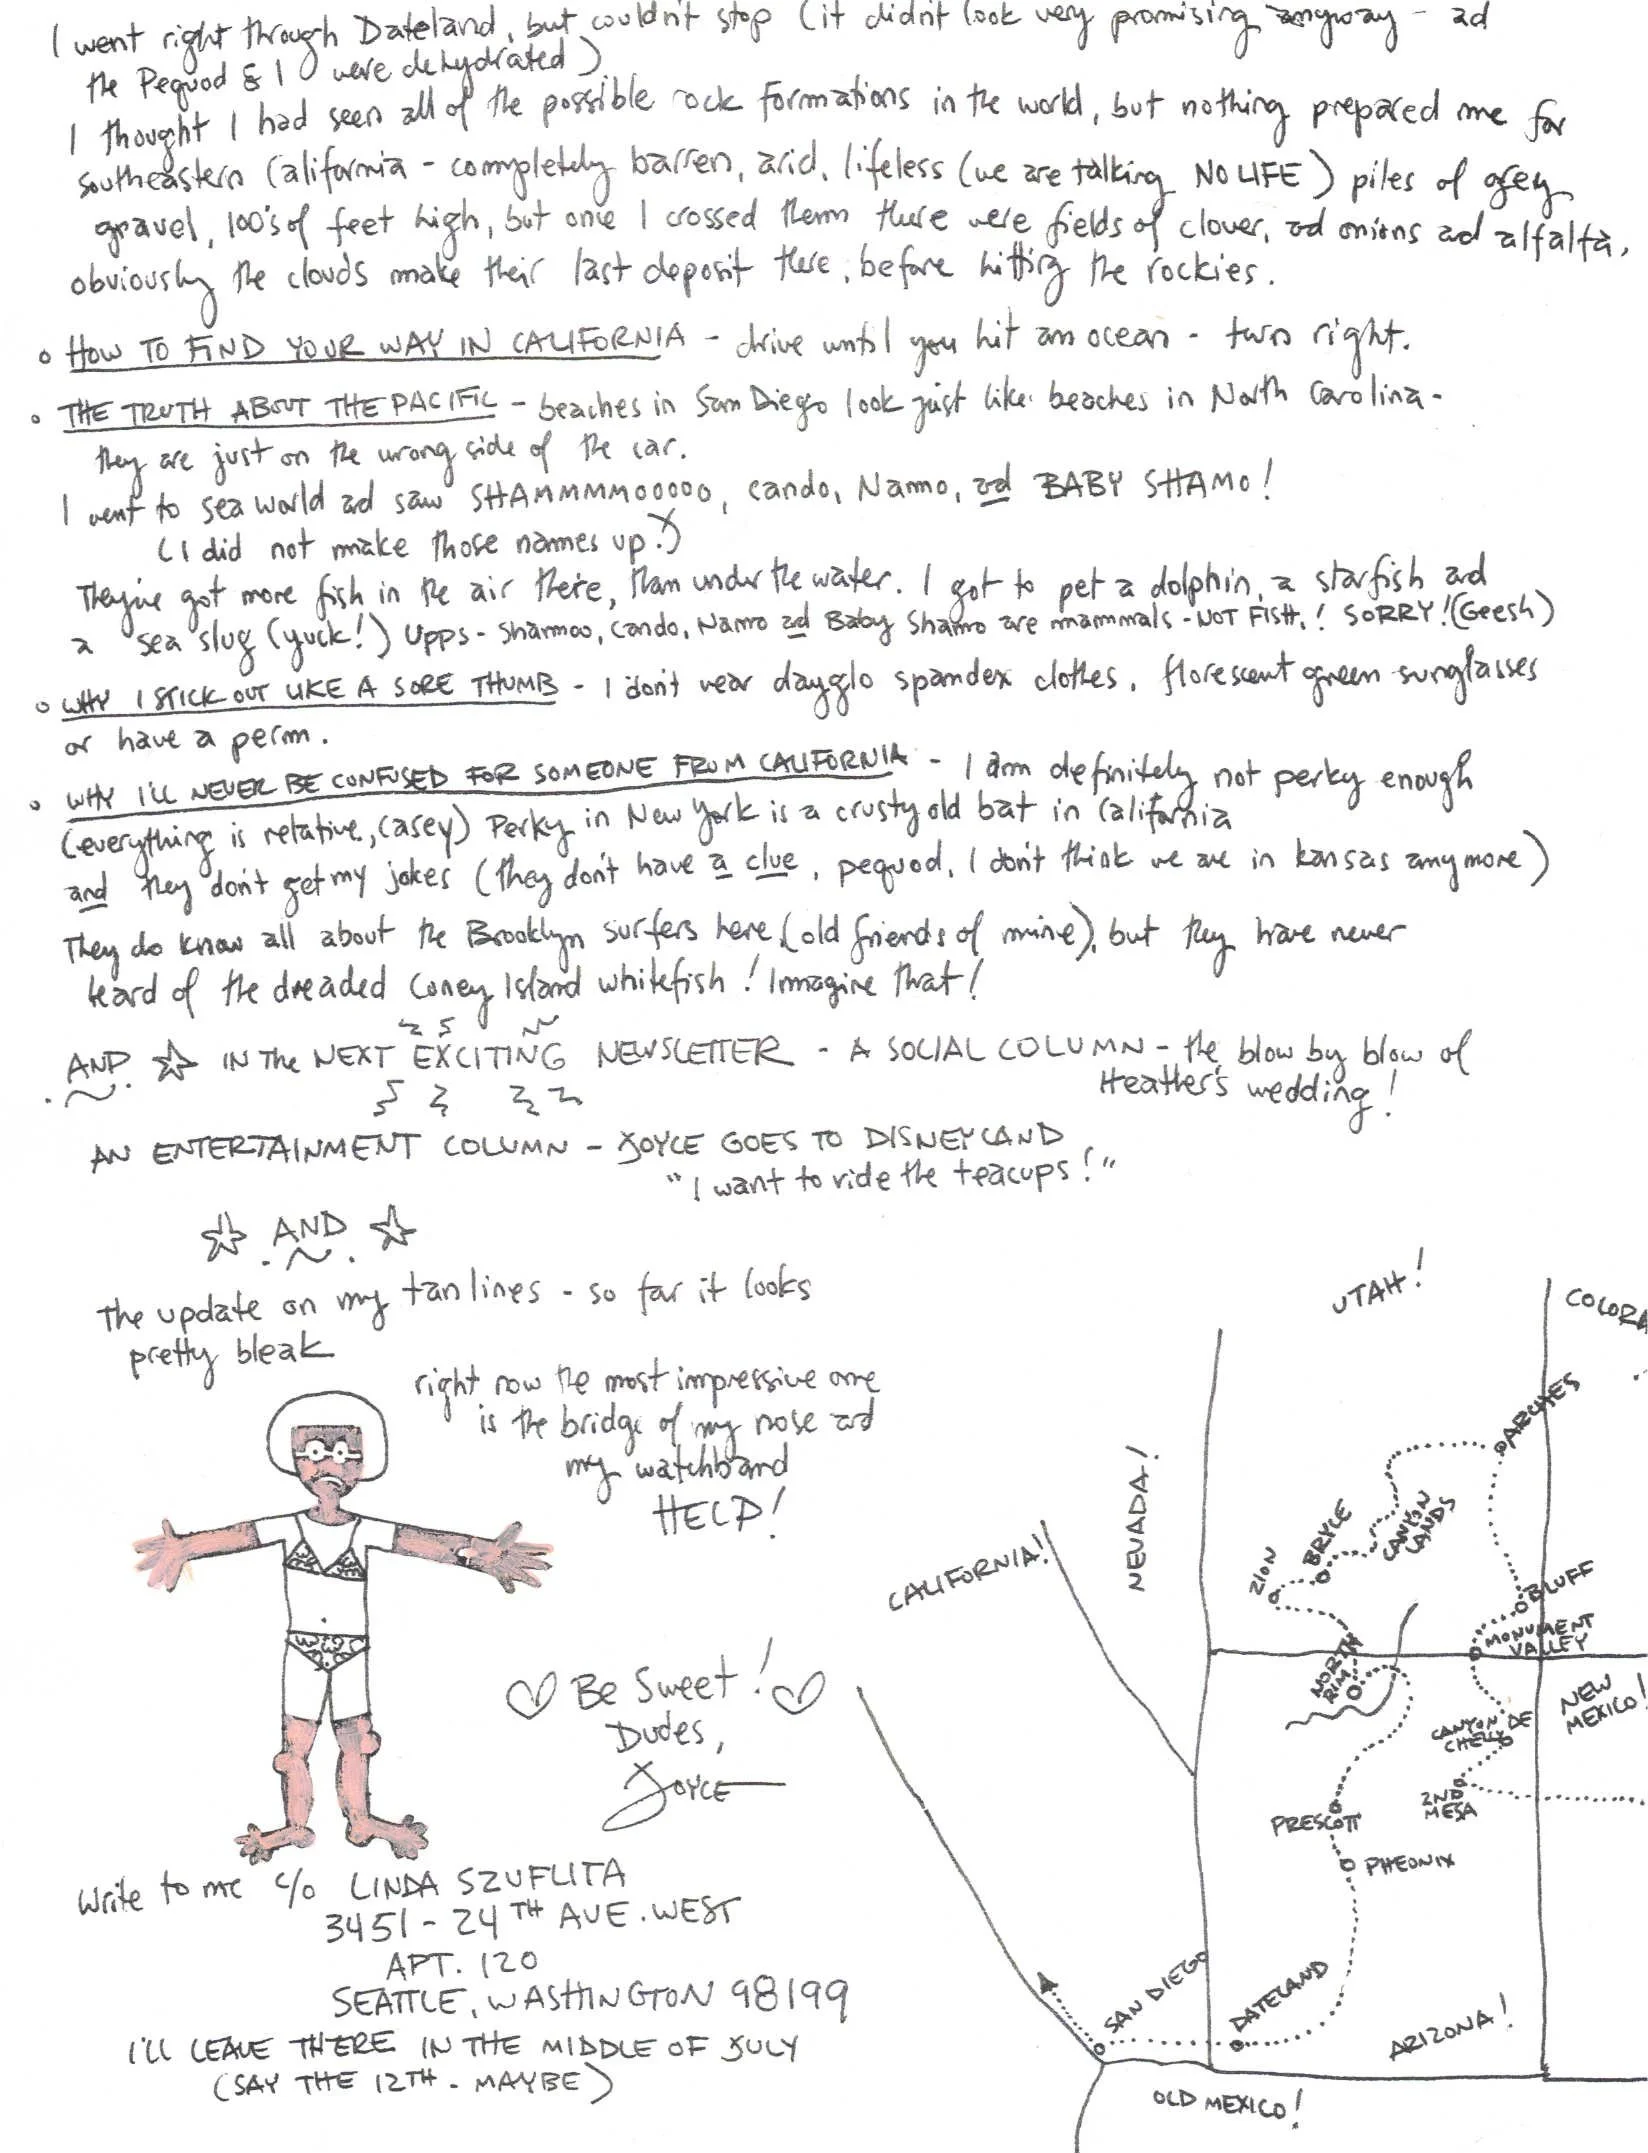 I went right through Dateland, but couldn't stop (it didn't look very promising anyway - ad
the Pequod & I were dehydrated)
I thought I had seen all of the possible rock formations in the world, but nothing prepared me for
southeastern California - completely barren, arid, lifeless (we are talking NO LIFE) piles of grey
gravel, 100's of feet high, but once I crossed them there were fields of clover, ad onions ad alfalfa,
obviously the clouds make their last deposit there, before hitting the rockies.
o HOW TO FIND YOUR WAY IN CALIFORNIA - drive until you hit an ocean - turn right.
o THE TRUTH ABOUT THE PACIFIC - beaches in San Diego look just like beaches in North Carolina -
they are just on the wrong side of the car.
I went to sea world ad saw SHAMMMMOOOOO, Cando, Namo, ad BABY SHAMO!
(I did not make those names up!)
They've got more fish in the air there, than under the water. I got to pet a dolphin, a starfish ad
a sea slug (yuck!) Upps - Shamoo, Cando, Namo ad Baby Shamo are mammals - NOT FISH,! SORRY! (Geesh)
o WHY I STICK OUT LIKE A SORE THUMB - I don't wear dayglo spandex clothes, florescent green sunglasses
or have a perm.
o WHY I'LL NEVER BE CONFUSED FOR SOMEONE FROM CALIFORNIA - I am definitely not perky enough
(everything is relative, Casey) Perky in New York is a crusty old bat in California
and they don't get my jokes (they don't have a clue, pequod, I don't think we are in kansas anymore)
They do know all about the Brooklyn surfers here (old friends of mine), but they have never
heard of the dreaded Coney Island whitefish! Imagine that!
AND ☆ IN THE NEXT EXCITING NEWSLETTER - A SOCIAL COLUMN - the blow by blow of
Heather's wedding!
AN ENTERTAINMENT COLUMN - JOYCE GOES TO DISNEYLAND
"I want to ride the teacups!"
☆ AND ☆
The update on my tan lines - so far it looks
pretty bleak
right now the most impressive one
is the bridge of my nose ad
my watchband
HELP!
♡ Be Sweet! ♡
Dudes,
Joyce
Write to me c/o LINDA SZUFLITA
3451 - 24TH AVE. WEST
APT. 120
SEATTLE, WASHINGTON 98199
I'LL LEAVE THERE IN THE MIDDLE OF JULY
(SAY THE 12TH - MAYBE)
UTAH!
COLORA
ARCHES
NEVADA!
CALIFORNIA!
ZION
BRYCE
CANYON
LANDS
BLUFF
MONUMENT
VALLEY
NORTH
RIM
NEW
MEXICO!
CANYON DE
CHELLY
2ND
MESA
PRESCOTT
PHEONIX
SAN DIEGO
DATELAND
ARIZONA!
OLD MEXICO!